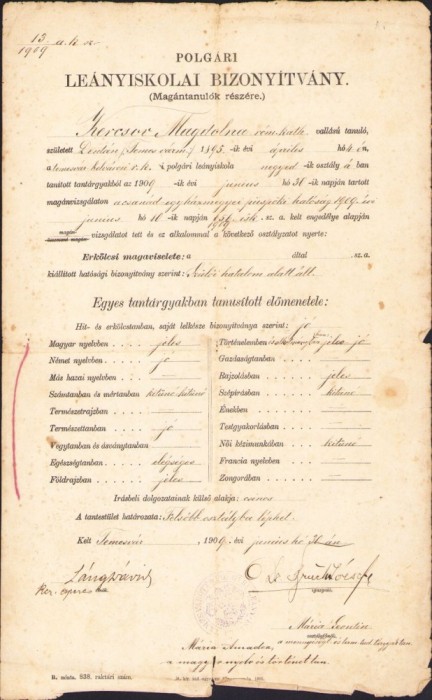 13
1909 a. k. sz.
POLGÁRI
LEÁNYISKOLAI BIZONYÍTVÁNY.
(Magántanulók részére.)
Kercsov Magdolna róm. kath. vallású tanuló,
született (Temes várm.) 1895-ik évi április hó 4 én,
a polgári leányiskola negyed ik osztály á ban
tanított tantárgyakból az 1909 -ik évi junius hó 30 -ik napján tartott
magánvizsgálaton a csanád egyházmegyei püspöki hatóság 1909. évi
junius hó 10 -ik napján sz. a. kelt engedélye alapján
vizsgálatot tett és ez alkalommal a következő osztályzatot nyerte:
Erkölcsi magaviselete: a által sz. a
kiállított hatósági bizonyítvány szerint: Szülői hatalom alatt áll.
Egyes tantárgyakban tanusított előmenetele:
Hit- és erkölcstanban, saját lelkésze bizonyítványa szerint: jó
Magyar nyelvben jeles
Német nyelvben jó
Más hazai nyelvben
Számtanban és mértanban kitünő kitünő
Természetrajzban
Természettanban jó
Vegytanban és ásványtanban
Egészségtanban elégséges
Földrajzban jeles
Történelemben jeles jó
Gazdaságtanban
Rajzolásban jeles
Szépírásban kitünő
Énekben
Testgyakorlásban
Női kézimunkában kitünő
Franczia nyelvben
Zongorában
Irásbeli dolgozatainak külső alakja: csinos
A tantestület határozata: Felsőbb osztályba léphet.
Kelt Temesvár, 1909. évi junius hó 30 án
Láng Dávid
igazgató.
Mária Leontine
Mária Amadea,
a magyar nyelv és történettan.
R. minta. 838. raktári szám.